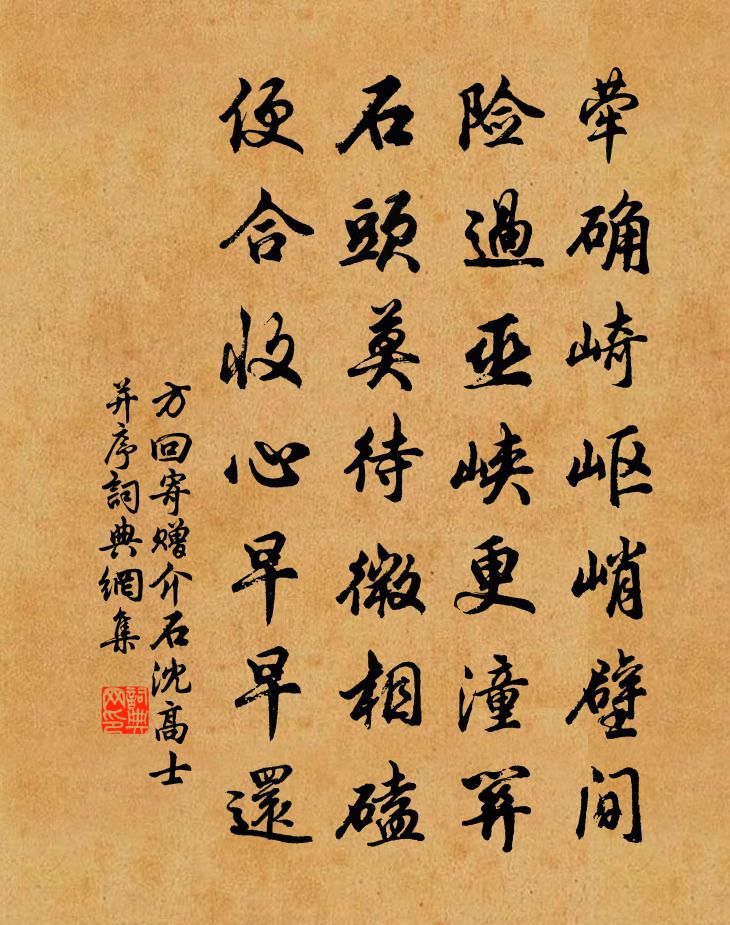 荦确崎岖峭壁间
险過巫峡更潼关
石頭莫待微相磕
便合收心早早還
方回寄赠介石沈高士
并序詞典網集
詞典网印